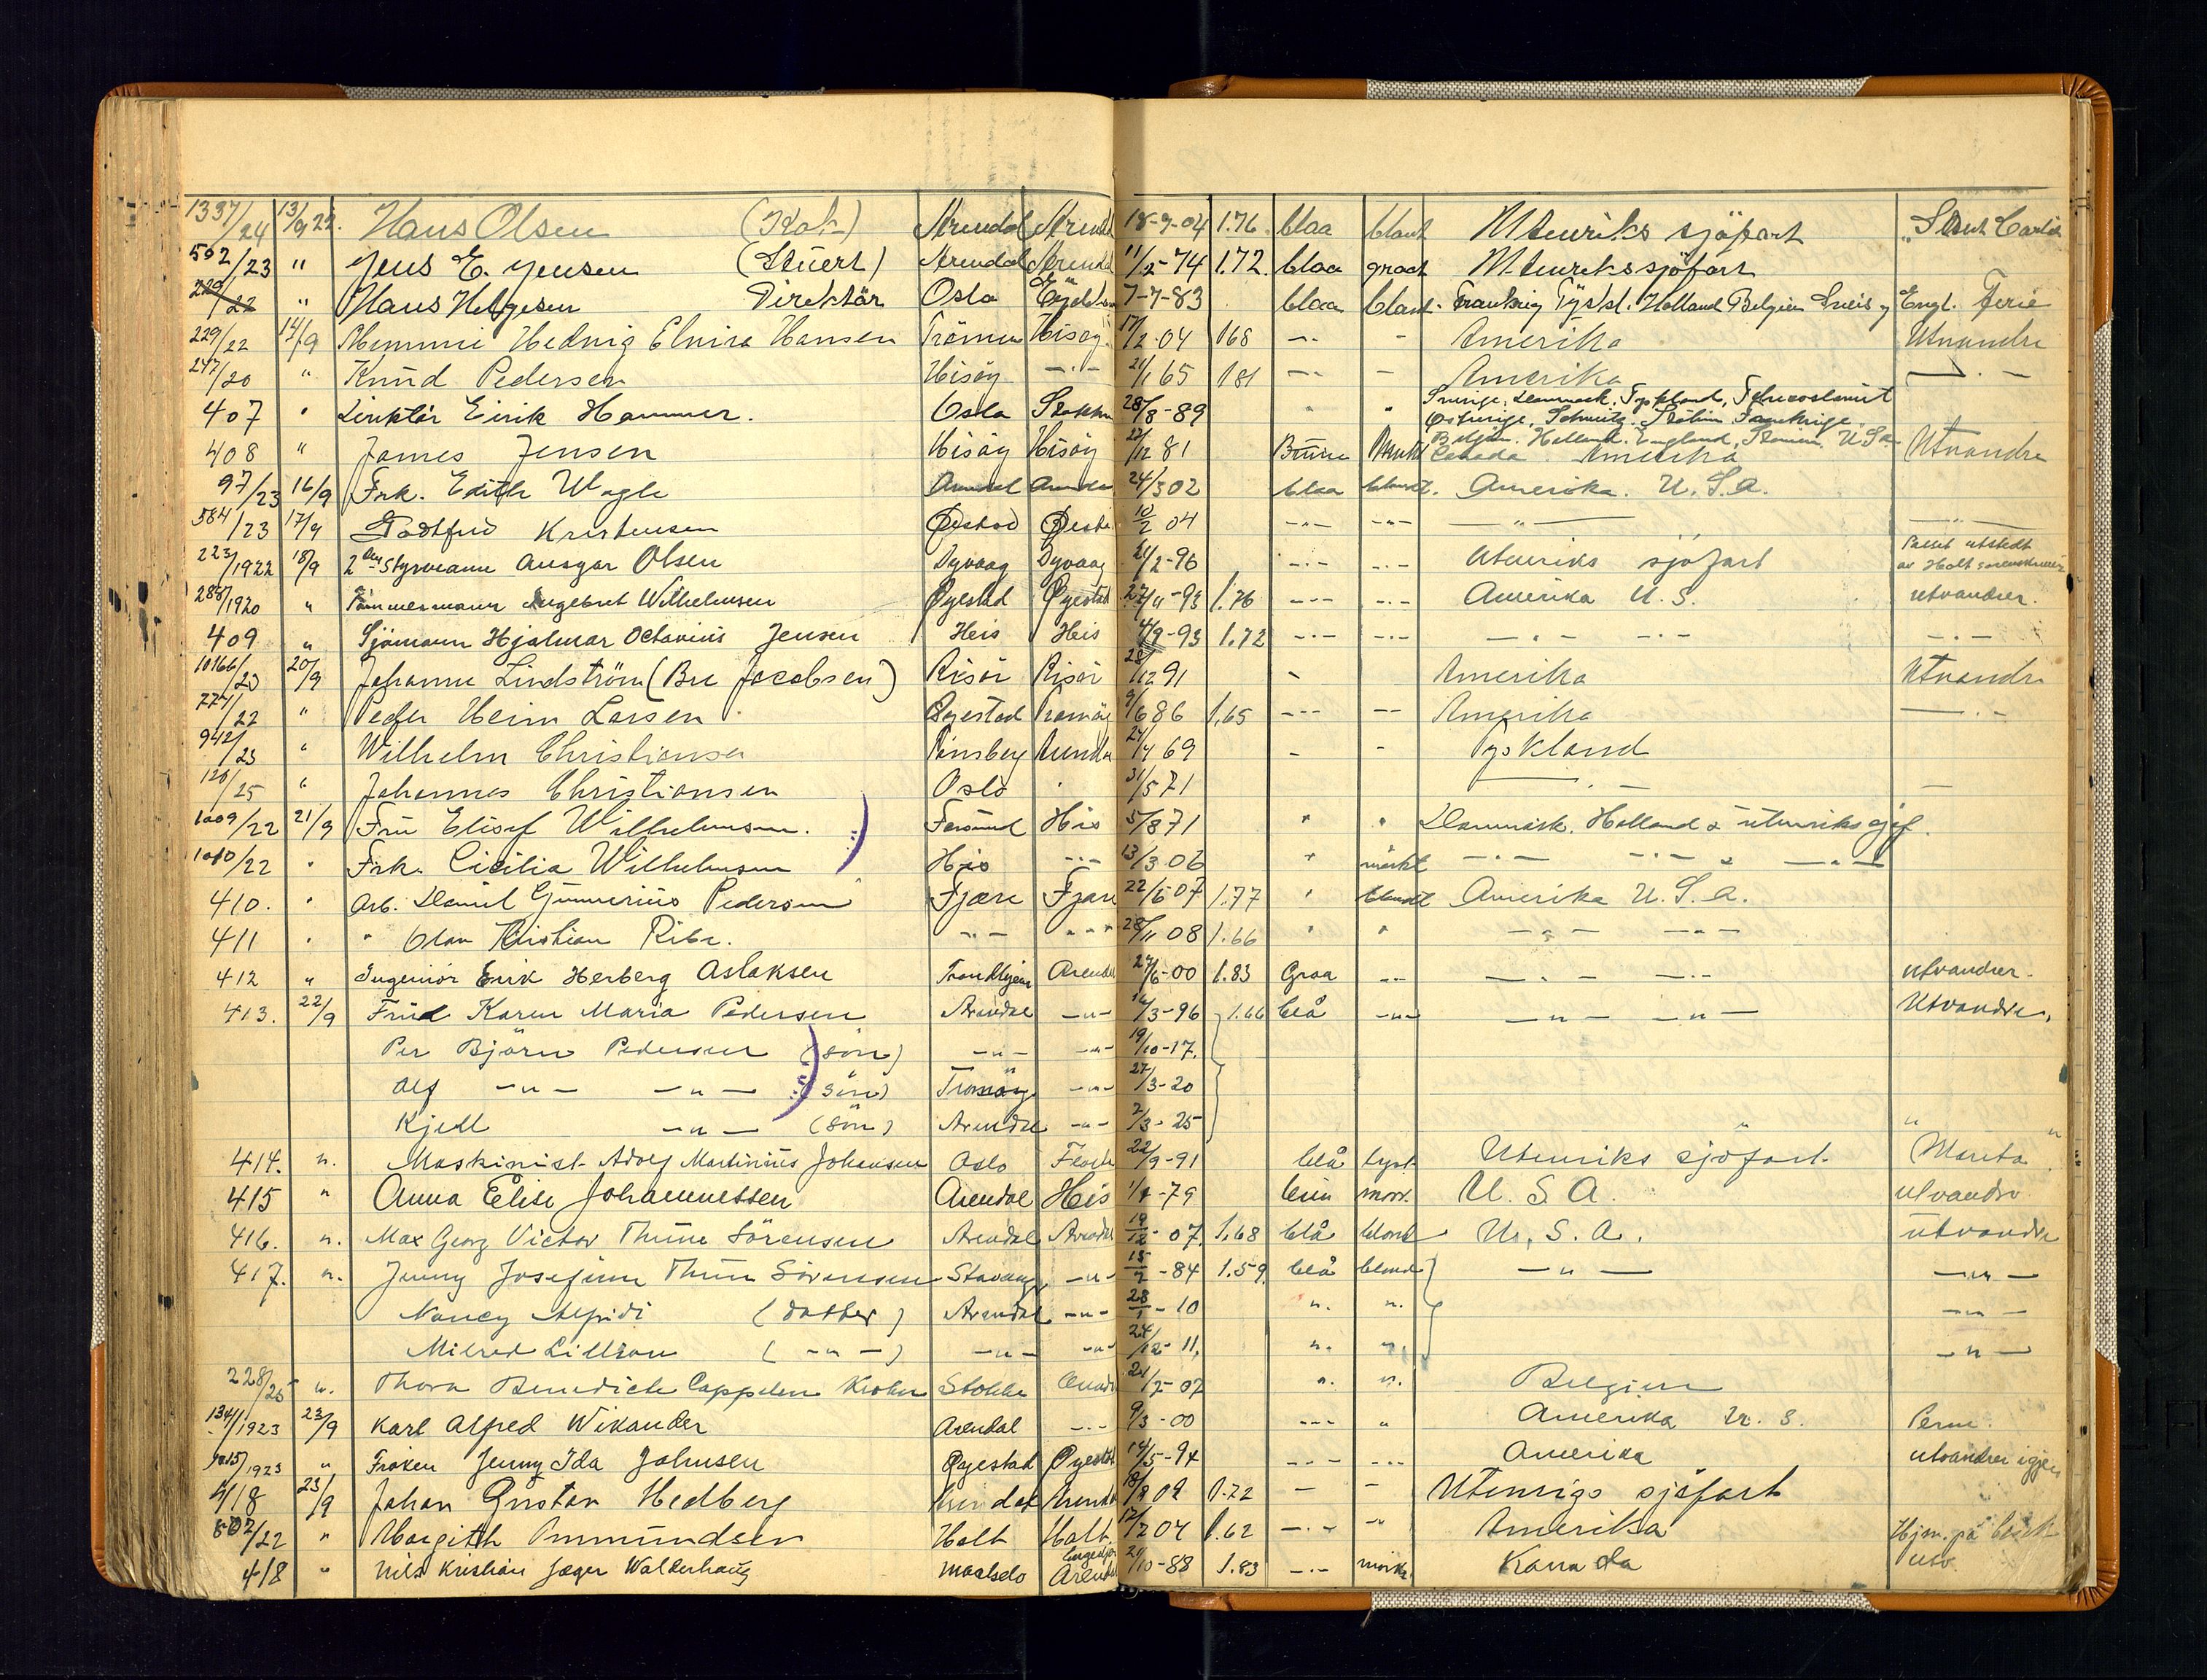 1337/24 13/9 22. Hans Olsen (Kok) Arendal Arendal 18-9-04 1.76. blaa blant Utenriks sjöfart
592/23 " Jens E. Jensen (Stüert) Arendal Arendal 11/2-74 1.72. blaa graat Utenrikssjöfart
229/22 " Hans Helgesen Direktör Oslo 7-7-83 blaa blant. Frankrig Tyskl. Holland Belgien Sveis og Engl. Ferie
229/22 14/9 Hemmie Hedvig Elvira Hansen Tromöy Hisöy 17/2 04 168 -.- - Amerika Utvandre
247/20 " Knud Pedersen Hisöy -.- 21/1 65 181 -.- - Amerika -.-
407 " Direktör Eirik Hammer. Oslo 28/8-89 " " Sverige, Danmark, Tyskland,
Østerige, Schweitz, Italien Frankrige
408 " James Jensen Hisöy Hisöy 22/12 81 Brune Mørkt Belgien. Holland. England, U.S.A. Utvandre
Canada. Amerika
97/23 16/9 Frk. Edith Wagle Arendal Arendal 24/3 02 blaa blondt. Amerika. U.S.A.
584/23 17/9 Godtfred Kristensen Øiestad Øiesta 10/2 04 -"- -"- -"- -"-
223/1922 18/9 2den Styrmann Ansgar Olsen Dyvaag Dyvaag 21/2-96 -.- -.- Utenriks sjöfart Passet utstedt
av Holt sorenskriver
288/1920 " Tömmermann Ingebret Wilhelmsen Øyestad Øyestad 27/11-93 1.76 --- -.- Amerika U.S. utvandrer.
409 " Sjömann Hjalmar Octavius Jensen Heis Heis 4/9-93 1.72 -.- -.- -.- -.- -.-
10166/23 20/9 Johanne Lindström (Bre Jacobsen) Risör Risör 28/12 91 - Amerika Utvandre
774/22 " Peder Heim Larsen Øyestad Tromöy 9/6 86 1.65 --- -- Amerika -.-
942/23 " Wilhelm Christiansen Tönsberg Arendal 24/4 69 - - Tyskland
120/25 " Johannes Christiansen Oslo " 31/5 71 -
1009/22 21/9 Frü Elisef Wilhelmsen. Farsund His 5/8 71 " " Danmark. Holland & utenriks sjöf.
1010/22 " Frk. Cicilia Wilhelmsen His -.- 13/3 06 " mörkt -.- -.- " -.-
410. " Arb. Daniel Gunnerius Pedersen Fjære Fjære 22/6 07 1.77 " blondt Amerika U.S.A.
411 " " Olav Kristian Ribe. -.- -"- 28/11 08 1.66 " " -"- -"-
412 " Ingeniör Erik Herberg Aslaksen Trondhjem Arendal 27/6-00 1.83 Graa -.- -.- -.- utvandrer.
413. 22/9 Früe Karen Maria Pedersen Arendal -"- 16/3-96 1.66 blå -"- -"- -"- Utvandrer,
Per Björn Pedersen (sön) -"- -"- 19/10-17.
Alf -"- -"- (sön) Tromöy -"- 27/3-20
Kjell -"- (sön) Arendal -"- 7/3-25
414. ". Maskinist Adolf Martinius Johansen Oslo 22/9-91 blå lyst Utenriks sjöfart. "Marita".
415 " Anna Elise Johannessen Arendal His 1/4-79 brün mörk. U.S.A. utvandre
416. ". Max Georg Victor Thüne Sörensen Arendal Arendal 19/12-07 1.68 blå blond U.S.A. ütvandre
417. ". Jenny Josefine Thüne Sörensen Stavanger -"- 15/2-84 1.59. blå blond -"- -"-
Nancy Alfridi (datter) Arendal -"- 28/1-10 ". ". -"-
Milred Lillian (-"-) -"- -"- 24/12-11. ". ". -"-
228/25 ". Thora Benedicte Cappelen Krohn Stokke Arendal 21/7-07 ". ". Belgien
1341/1923 23/9 Karl Alfred Wikander Arendal -.- 9/3-00 --- " Amerika U.S. Perm.
1015/1923 " Fröken Jenny Ida Johnsen Øyestad Øyestad 14/5-94 -.- -.- Amerika utvandrer igjen
418 23/9 Johan Güstav Hedberg Arendal Arendal 18/9 09 1.72 - - Utenrigs sjöfart
802/22 " Margith Ommundsen Holt Holt. 17/2 04 1.62 -.- -"- Amerika Hjem. på besök
418 " Nils Kristian Jæger Walderhaug Maalselv Arendal 21/10-88 1.83 -.- mörk Kanada utv.